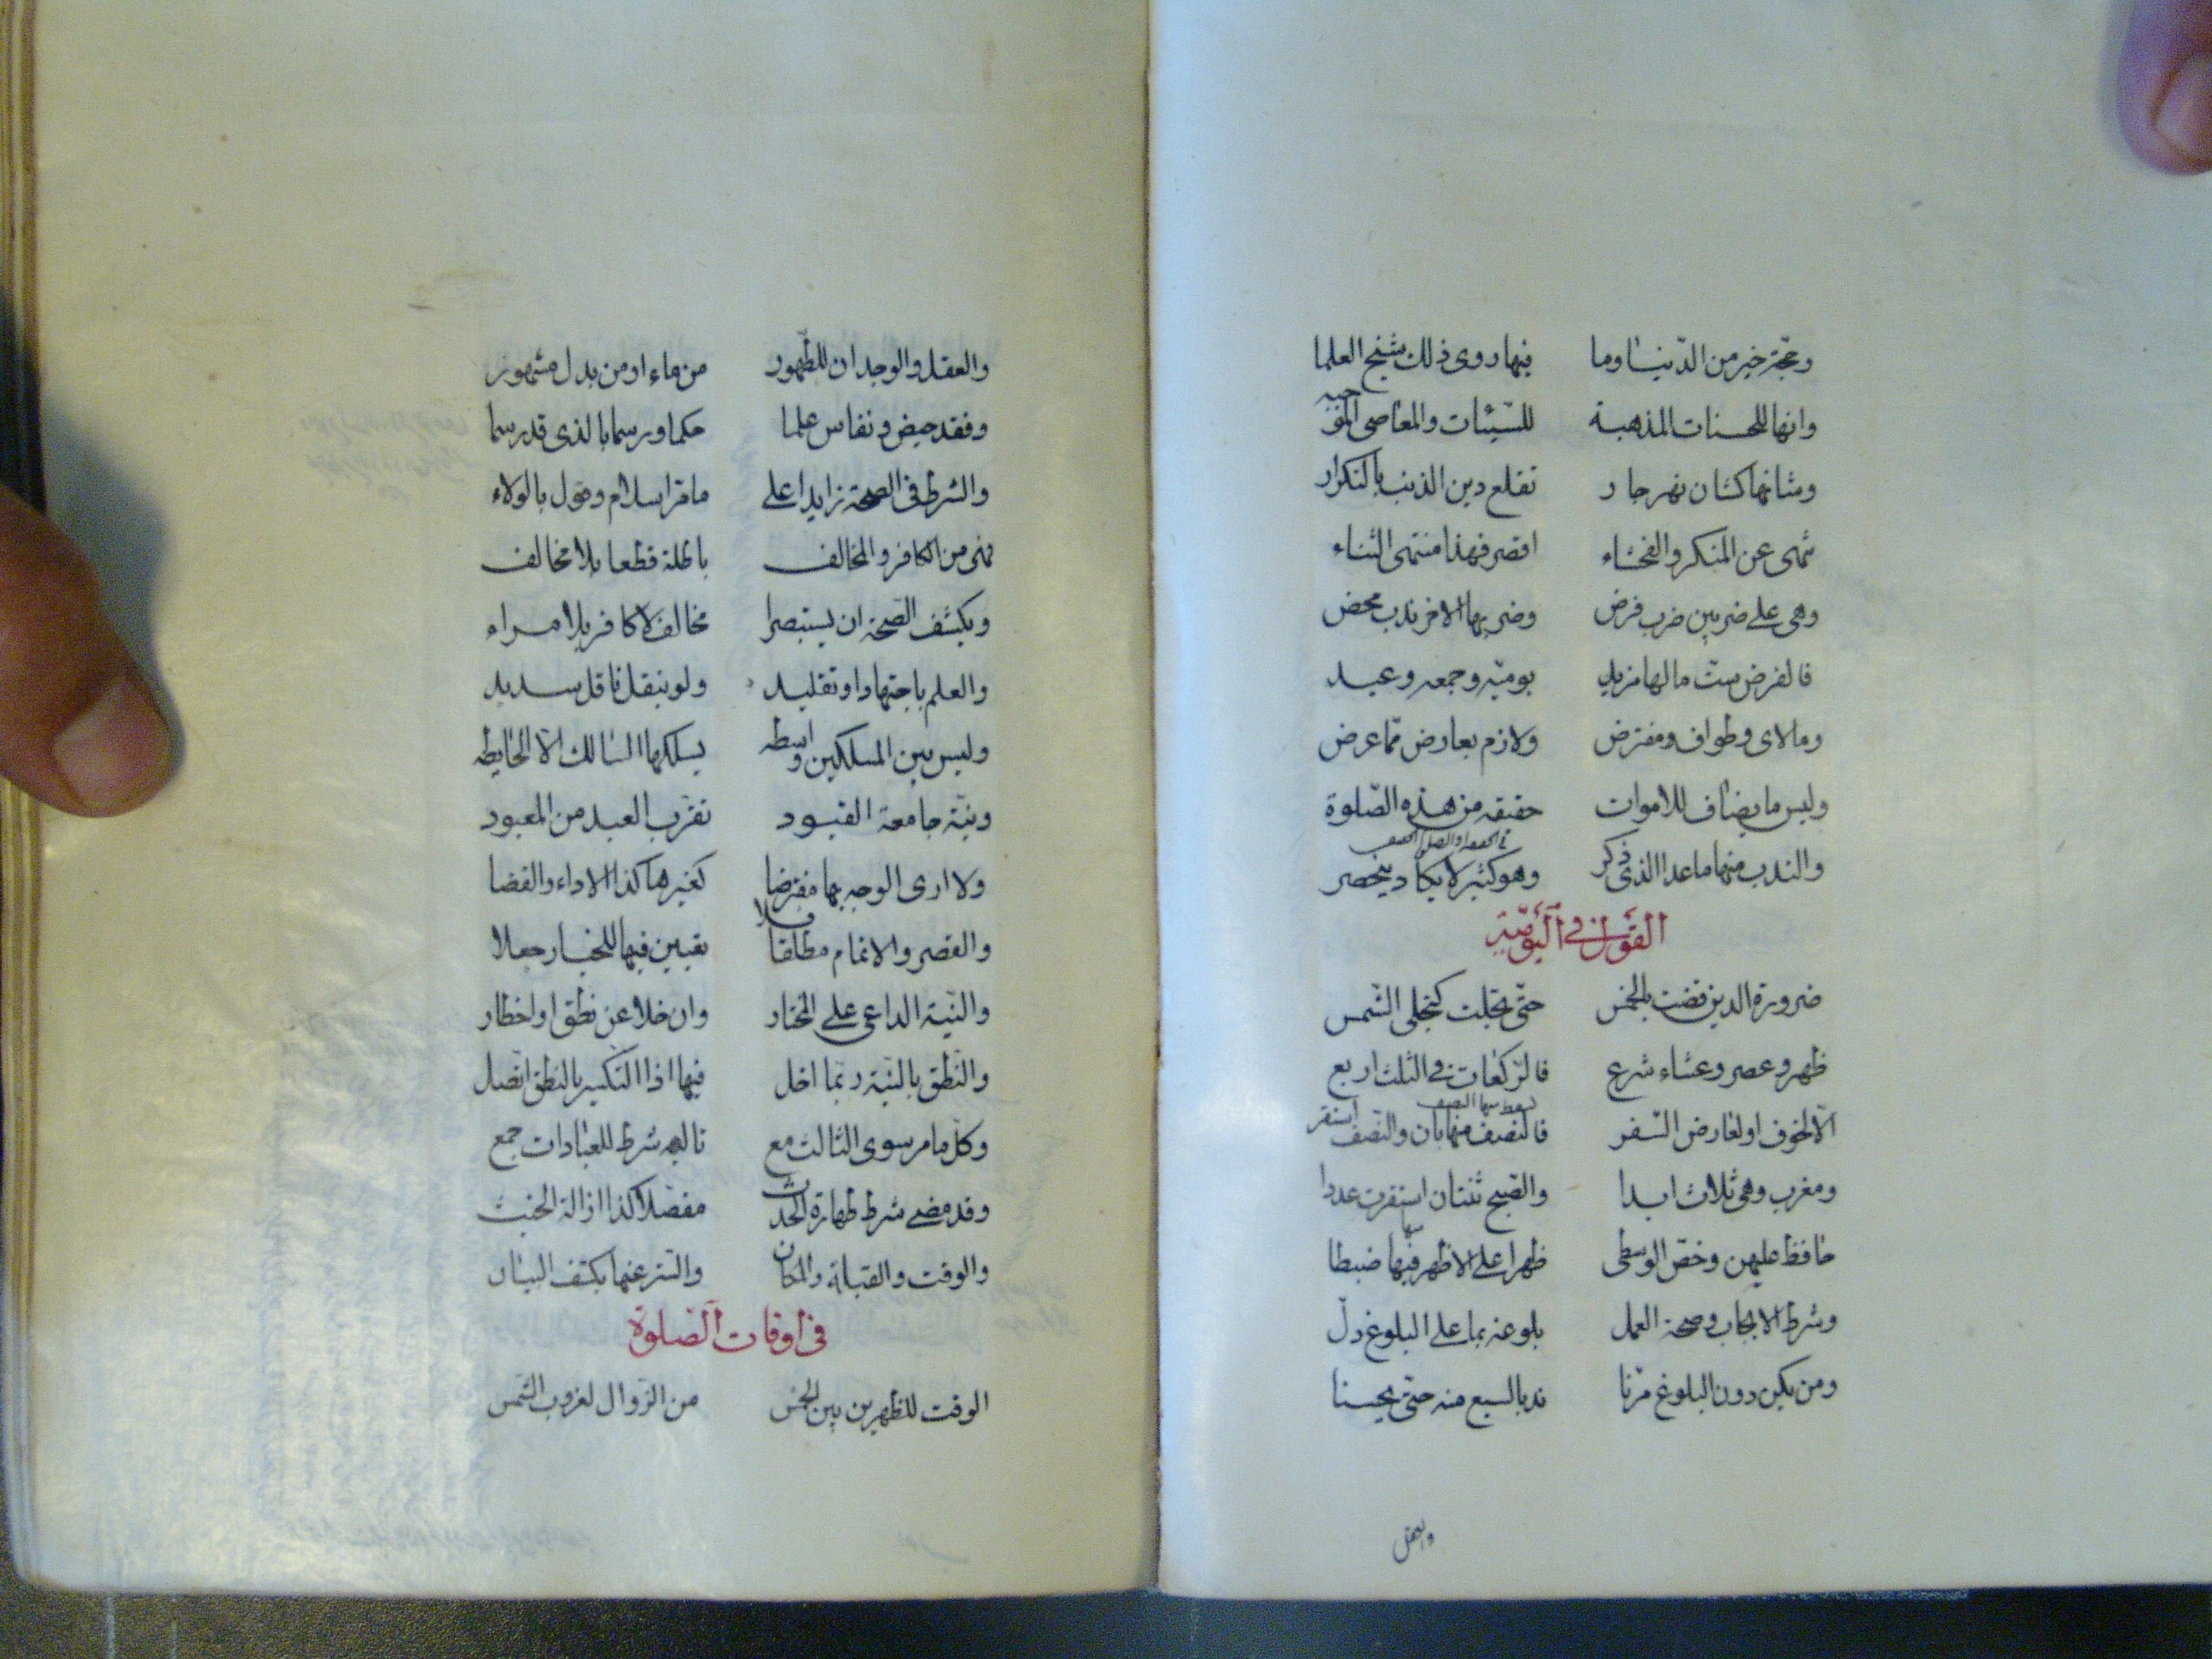 وحجّة خير من الدّنيا وما فيها روى ذلك شيخ العلما
وانها للحسنات المذهبة للسّيّئات والمعاصى الموجبه
وشانها كشان نهر جار تقلع دين الذنب بالتكرار
تنهى عن المنكر والفحشاء اقصر فهذا منتهى الثناء
وهى على ضربين ضرب فرض وضربها الاخر ندب محض
فالفرض ستّ مالها مزيد يوميّه وجمعه وعيد
وما لاى وطواف ومفترض ولازم بعارض ممّا عرض
وليس ما يضاف للاموات حقيقه من هذه الصّلوة
والندب منها ما عدا الذى ذكر وهو كثير لا يكاد ينحصر
القول فى اليوميّة
ضرورة الدين قضت بالخمس حتّى تجلت كتجلى الشّمس
ظهر وعصر وعشاء شرع فالرّكعات فى الثلث اربع
الّا لخوف او لعارض السّفر فالنّصف منها بان والنّصف استقر
ومغرب وهى ثلاث ابدا والصّبح ثنتان استقرت عددا
حافظ عليهن وخصّ الوسطى ظهرا على الاظهر فيها ضبطا
وشرط الايجاب وصحة العمل بلوغه بما على البلوغ دلّ
ومن يكن دون البلوغ مرّنا ندبا لسبع منه حتّى يحسنا
والعقل
والعقل والوجدان للطّهور من ماء او من بدل مشهور
وفقد حيض ونفاس علما حكما ورسما بالذى قد رسما
والشرط فى الصحّة زايدا على ما مرّ اسلام وقول بالولاء
فهى من الكافر والمخالف باطلة قطعا بلا مخالف
ويكشف الصّحة ان يستبصرا مخالف لا كافر بلا مراء
والعلم باجتهاد او تقليد ولو بنقل ناقل سديد
وليس بين المسلكين واسطه يسلكها السّالك الّا الخابطه
ونيّة جامعة القيود تقرّب العبد من المعبود
ولا ارى الوجه بها مفترضا كغيرها كذا الاداء والقضا
والقصر والاتمام مطلقا فلا تعيين فيها للخيار جعلا
والنّية الداعى على المختار وان خلا عن نطق او اخطار
والنّطق بالنيّة ربّما اخل فيها اذا التكبير بالنطق اتّصل
وكلّ ما مر سوى الثالث مع تاليه شرط للعبادات جمع
وقد مضى شرط طهارة الحدث مفصّلا كذا ازالة الخبث
والوقت والقبلة والمكان والستر عنها يكشف البيان
فى اوقات الصّلوة
الوقت للظهرين بين الخمس من الزّوال لغروب الشّمس